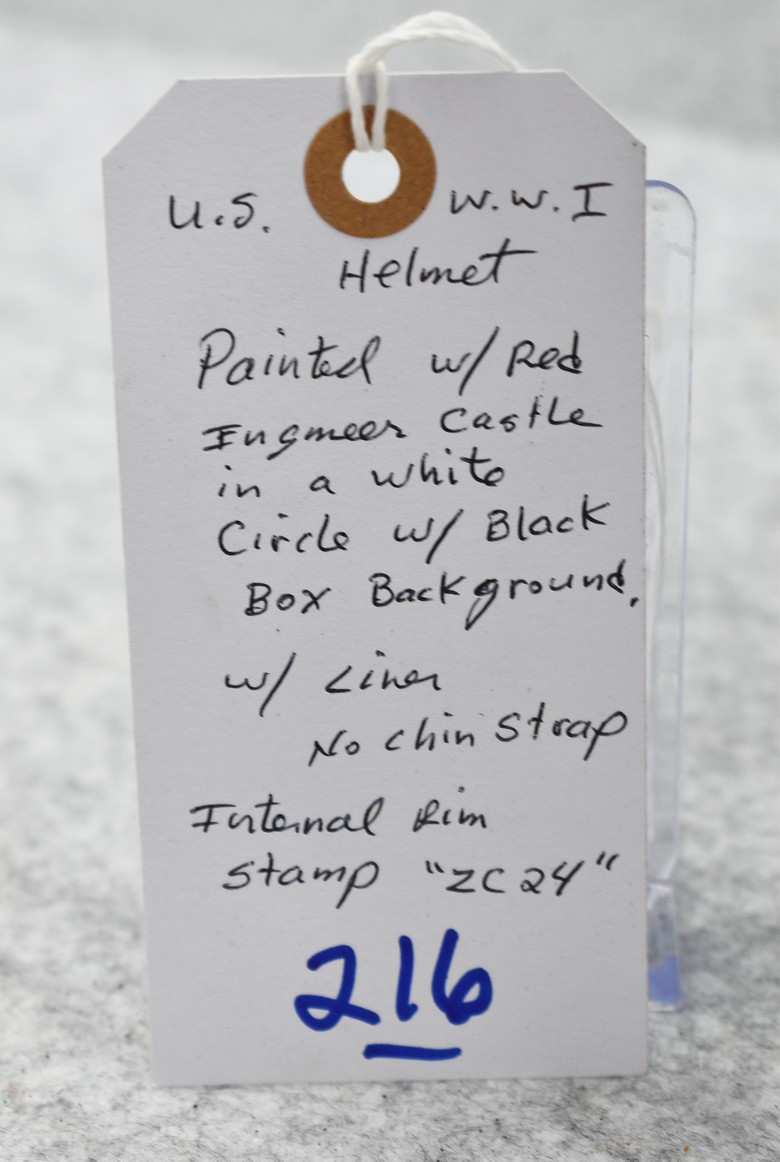 U.S. W.W.I
Helmet
Painted w/ Red
Engineer Castle
in a white
Circle w/ Black
Box Background.
w/ Liner
No chin strap
Internal Rim
stamp "ZC 24"
216